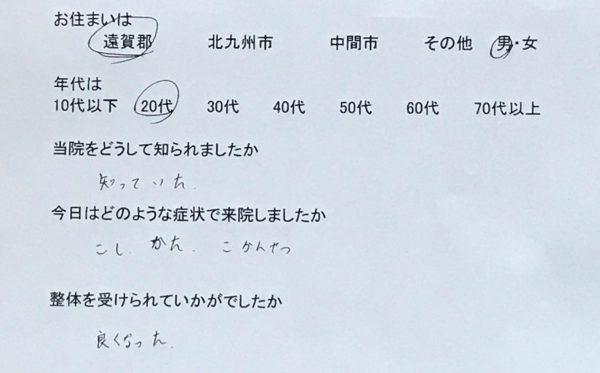 お住まいは
遠賀郡 北九州市 中間市 その他 男・女
年代は
10代以下 20代 30代 40代 50代 60代 70代以上
当院をどうして知られましたか
知っていた.
今日はどのような症状で来院しましたか
こし. かた. こかんせつ
整体を受けられていかがでしたか
良くなった.